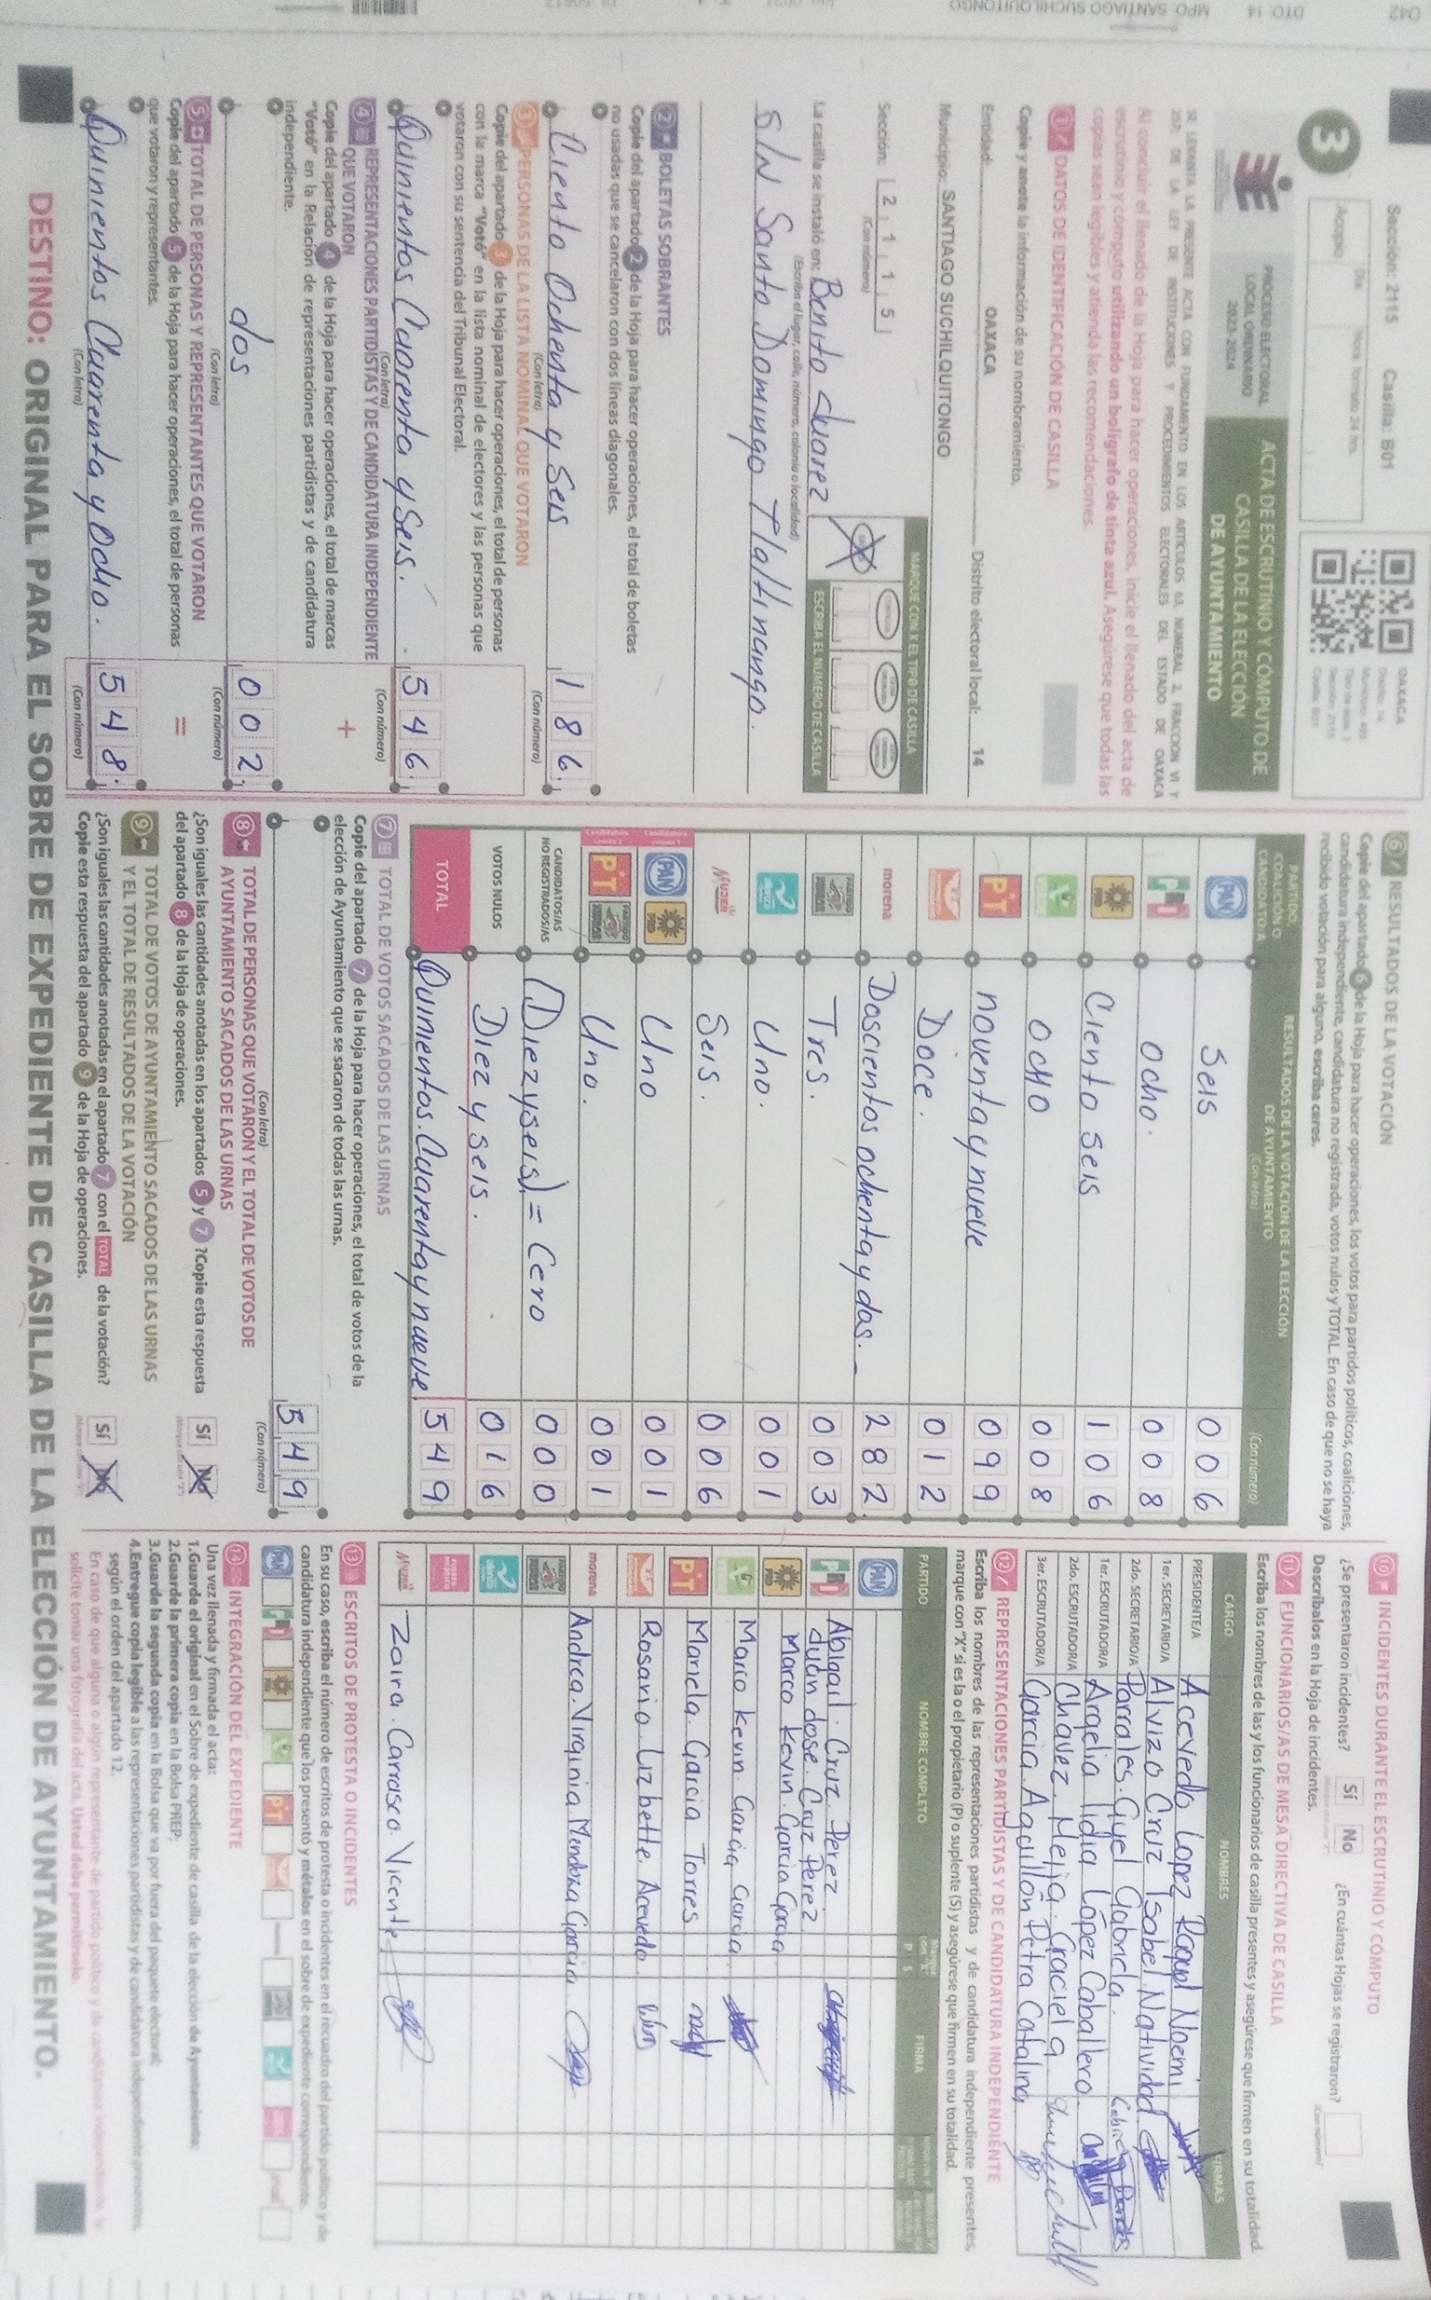 Sección: 2115 Casilla: B01
OAXACA
3
Acopio
PROCESO ELECTORAL
LOCAL ORDINARIO
2023-2024
ACTA DE ESCRUTINIO Y CÓMPUTO DE
CASILLA DE LA ELECCIÓN
DE AYUNTAMIENTO
SE LEVANTA LA PRESENTE ACTA CON FUNDAMENTO EN LOS ARTÍCULOS 63, NUMERAL 2, FRACCIÓN VI Y
257, DE LA LEY DE INSTITUCIONES Y PROCEDIMIENTOS ELECTORALES DEL ESTADO DE OAXACA
Al concluir el llenado de la Hoja para hacer operaciones, inicie el llenado del acta de
escrutinio y cómputo utilizando un bolígrafo de tinta azul. Asegúrese que todas las
copias sean legibles y atienda las recomendaciones.
1 DATOS DE IDENTIFICACIÓN DE CASILLA
Copie y anote la información de su nombramiento.
Entidad: OAXACA Distrito electoral local: 14
Municipio: SANTIAGO SUCHILQUITONGO
Sección: 2 1 1 5
(Con número)
MARQUE CON X EL TIPO DE CASILLA
ESCRIBA EL NÚMERO DE CASILLA
La casilla se instaló en: Benito Juarez
(Escriba el lugar, calle, número, colonia o localidad)
S/N Santo Domingo Tlaltinango.
2 BOLETAS SOBRANTES
Copie del apartado 2 de la Hoja para hacer operaciones, el total de boletas
no usadas que se cancelaron con dos líneas diagonales.
Ciento Ochenta y Seis 186
(Con letra) (Con número)
3 PERSONAS DE LA LISTA NOMINAL QUE VOTARON
Copie del apartado 3 de la Hoja para hacer operaciones, el total de personas
con la marca "Votó" en la lista nominal de electores y las personas que
votaron con su sentencia del Tribunal Electoral.
Quinientos Cuarenta y Seis. 546
(Con letra) (Con número)
4 REPRESENTACIONES PARTIDISTAS Y DE CANDIDATURA INDEPENDIENTE
QUE VOTARON
+
Copie del apartado 4 de la Hoja para hacer operaciones, el total de marcas
"Votó" en la Relación de representaciones partidistas y de candidatura
independiente.
dos 002
(Con letra) (Con número)
5 TOTAL DE PERSONAS Y REPRESENTANTES QUE VOTARON
=
Copie del apartado 5 de la Hoja para hacer operaciones, el total de personas
que votaron y representantes.
Quinientos Cuarenta y Ocho. 548
(Con letra) (Con número)
6 RESULTADOS DE LA VOTACIÓN
Copie del apartado 6 de la Hoja para hacer operaciones, los votos para partidos políticos, coaliciones,
candidatura independiente, candidatura no registrada, votos nulos y TOTAL. En caso de que no se haya
recibido votación para alguno, escriba ceros.
PARTIDO, COALICIÓN O CANDIDATO/A
RESULTADOS DE LA VOTACIÓN DE LA ELECCIÓN
DE AYUNTAMIENTO
(Con letra) (Con número)
PAN Seis 006
PRI Ocho. 008
PRD Ciento seis 106
OCHO 008
PT noventa y nueve 099
Doce. 012
morena Doscientos ochenta y dos. 282
Tres. 003
Uno. 001
MUJER Seis. 006
PAN PRD Uno 001
PT Uno. 001
CANDIDATOS/AS
NO REGISTRADOS/AS (Diez y seis). = Cero 000
VOTOS NULOS Diez y seis. 016
TOTAL Quinientos. Cuarenta y nueve 549
7 TOTAL DE VOTOS SACADOS DE LAS URNAS
Copie del apartado 7 de la Hoja para hacer operaciones, el total de votos de la
elección de Ayuntamiento que se sacaron de todas las urnas.
549
(Con letra) (Con número)
8 TOTAL DE PERSONAS QUE VOTARON Y EL TOTAL DE VOTOS DE
AYUNTAMIENTO SACADOS DE LAS URNAS
¿Son iguales las cantidades anotadas en los apartados 5 y 7 ? Copie esta respuesta
del apartado 8 de la Hoja de operaciones.
Sí No
9 TOTAL DE VOTOS DE AYUNTAMIENTO SACADOS DE LAS URNAS
Y EL TOTAL DE RESULTADOS DE LA VOTACIÓN
¿Son iguales las cantidades anotadas en el apartado 7 con el TOTAL de la votación?
Copie esta respuesta del apartado 9 de la Hoja de operaciones.
Sí No
10 INCIDENTES DURANTE EL ESCRUTINIO Y CÓMPUTO
¿Se presentaron incidentes? Sí No ¿En cuántas Hojas se registraron?
Descríbalos en la Hoja de incidentes.
11 FUNCIONARIOS/AS DE MESA DIRECTIVA DE CASILLA
Escriba los nombres de las y los funcionarios de casilla presentes y asegúrese que firmen en su totalidad.
CARGO NOMBRES FIRMAS
PRESIDENTE/A Acevedo Lopez Raquel Noemi
1er. SECRETARIO/A Alvizo Cruz Isabel Natividad
2do. SECRETARIO/A Parrales. Gyel Gabriela.
1er. ESCRUTADOR/A Argelia lidia López Caballero.
2do. ESCRUTADOR/A Chavez. Mejia. Graciela
3er. ESCRUTADOR/A Garcia. Aguillón Petra Catalina
12 REPRESENTACIONES PARTIDISTAS Y DE CANDIDATURA INDEPENDIENTE
Escriba los nombres de las representaciones partidistas y de candidatura independiente presentes,
marque con "X" si es la o el propietario (P) o suplente (S) y asegúrese que firmen en su totalidad.
PARTIDO NOMBRE COMPLETO P S FIRMA
PAN
PRI Abigail. Cruz. Perez.
Juan Jose. Cruz Perez
PRD Marco Kevin. Garcia Garcia
Marco Kevin. Garcia Garcia
PT Mariela. Garcia Torres
Rosario. Liz bette. Acevedo.
morena Andrea. Virginia Mendoza Garcia
MUJER Zaira. Carrasco. Vicente.
13 ESCRITOS DE PROTESTA O INCIDENTES
En su caso, escriba el número de escritos de protesta o incidentes en el recuadro del partido político y de
candidatura independiente que los presentó y métalos en el sobre de expediente correspondiente.
14 INTEGRACIÓN DEL EXPEDIENTE
Una vez llenada y firmada el acta:
1.Guarde el original en el Sobre de expediente de casilla de la elección de Ayuntamiento;
2.Guarde la primera copia en la Bolsa PREP;
3.Guarde la segunda copia en la Bolsa que va por fuera del paquete electoral;
4.Entregue copia legible a las representaciones partidistas y de candidatura independiente presentes,
según el orden del apartado 12.
solicite tomar una fotografía del acta. Usted debe permitírselo.
DESTINO: ORIGINAL PARA EL SOBRE DE EXPEDIENTE DE CASILLA DE LA ELECCIÓN DE AYUNTAMIENTO.